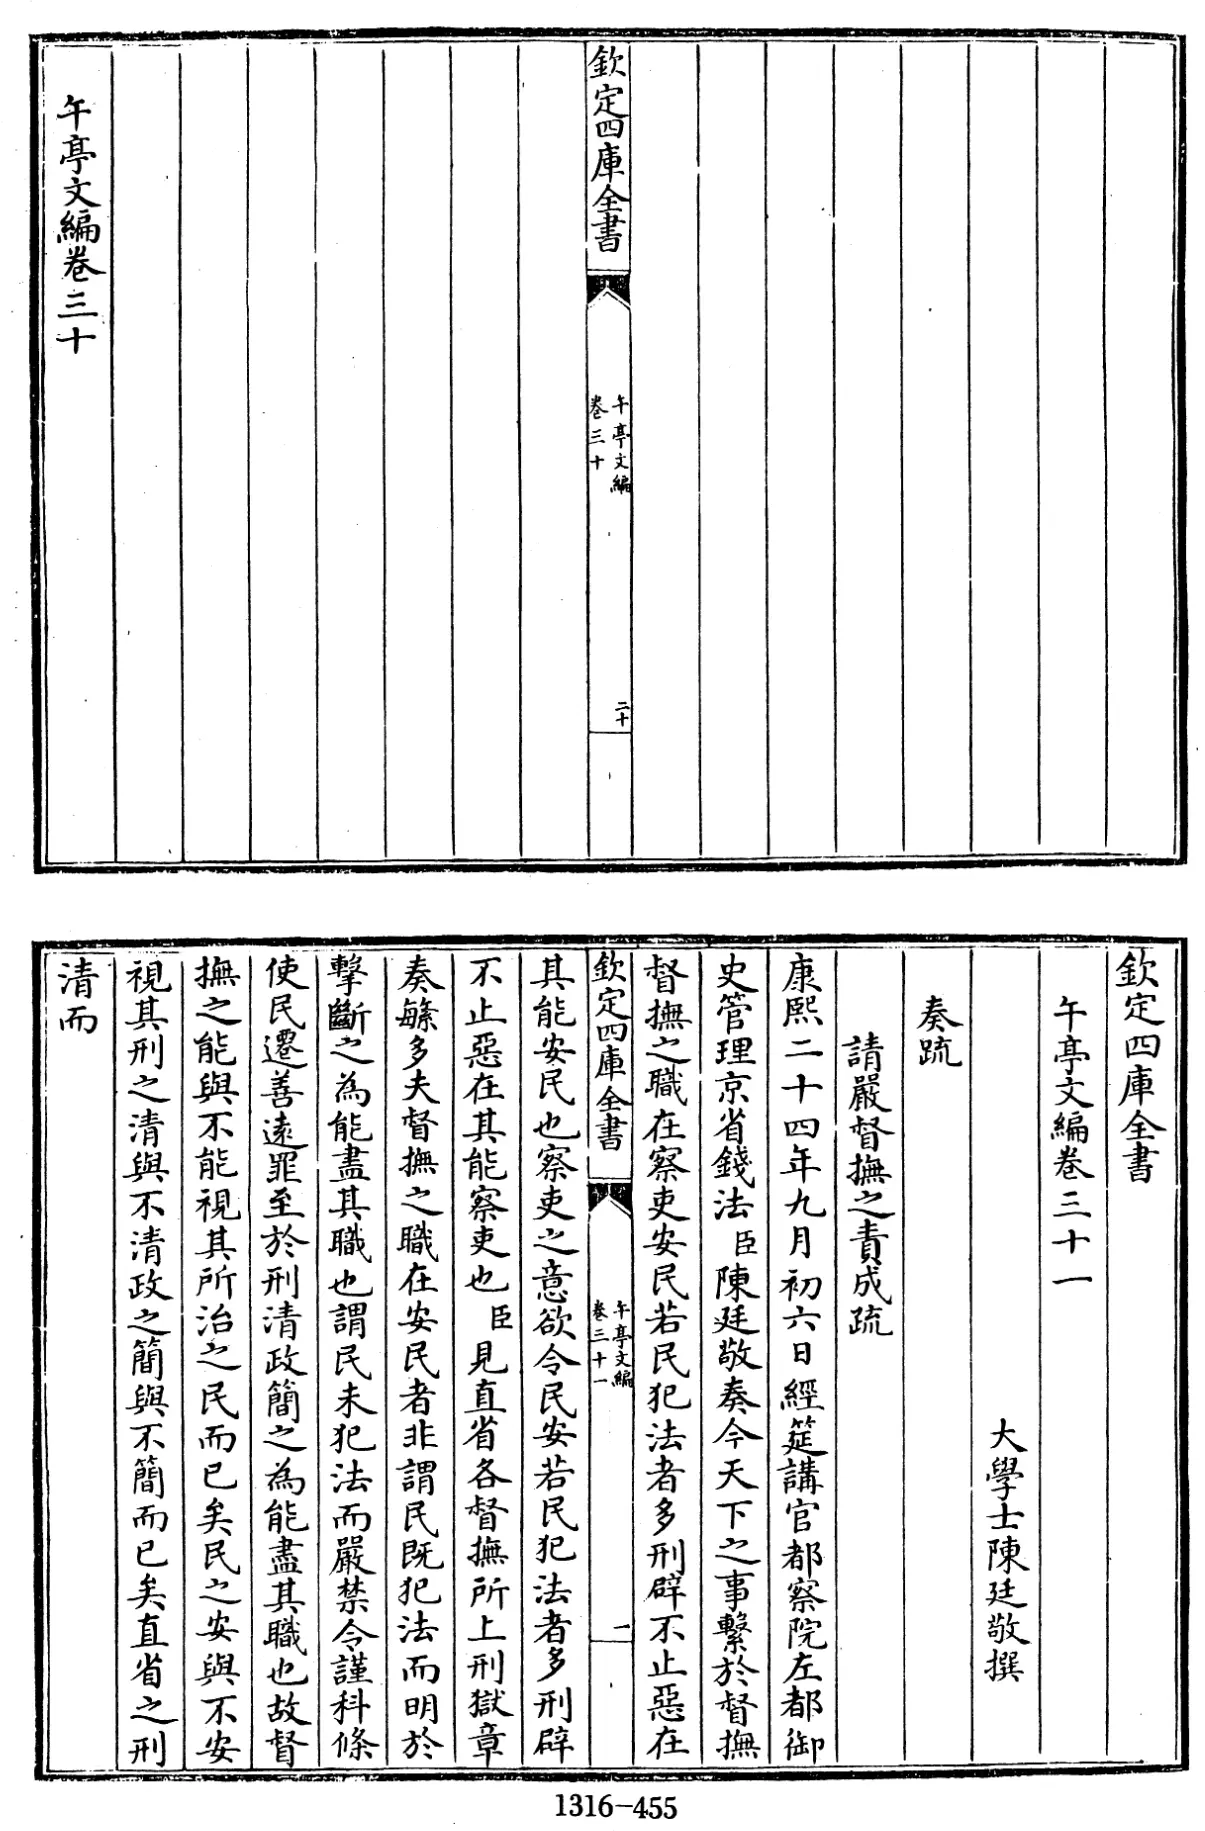 欽定四庫全書
午亭文編
卷三十
二十
午亭文編卷三十
欽定四庫全書
午亭文編卷三十一
大學士陳廷敬撰
奏疏
請嚴督撫之責成疏
康熙二十四年九月初六日經筵講官都察院左都御
史管理京省錢法臣陳廷敬奏今天下之事繫於督撫
督撫之職在察吏安民若民犯法者多刑辟不止惡在
欽定四庫全書
午亭文編
卷三十一
一
其能安民也察吏之意欲令民安若民犯法者多刑辟
不止惡在其能察吏也臣見直省各督撫所上刑獄章
奏緐多夫督撫之職在安民者非謂民既犯法而明於
擊斷之為能盡其職也謂民未犯法而嚴禁令謹科條
使民遷善遠罪至於刑清政簡之為能盡其職也故督
撫之能與不能視其所治之民而已矣民之安與不安
視其刑之清與不清政之簡與不簡而已矣直省之刑
清而
1316-455